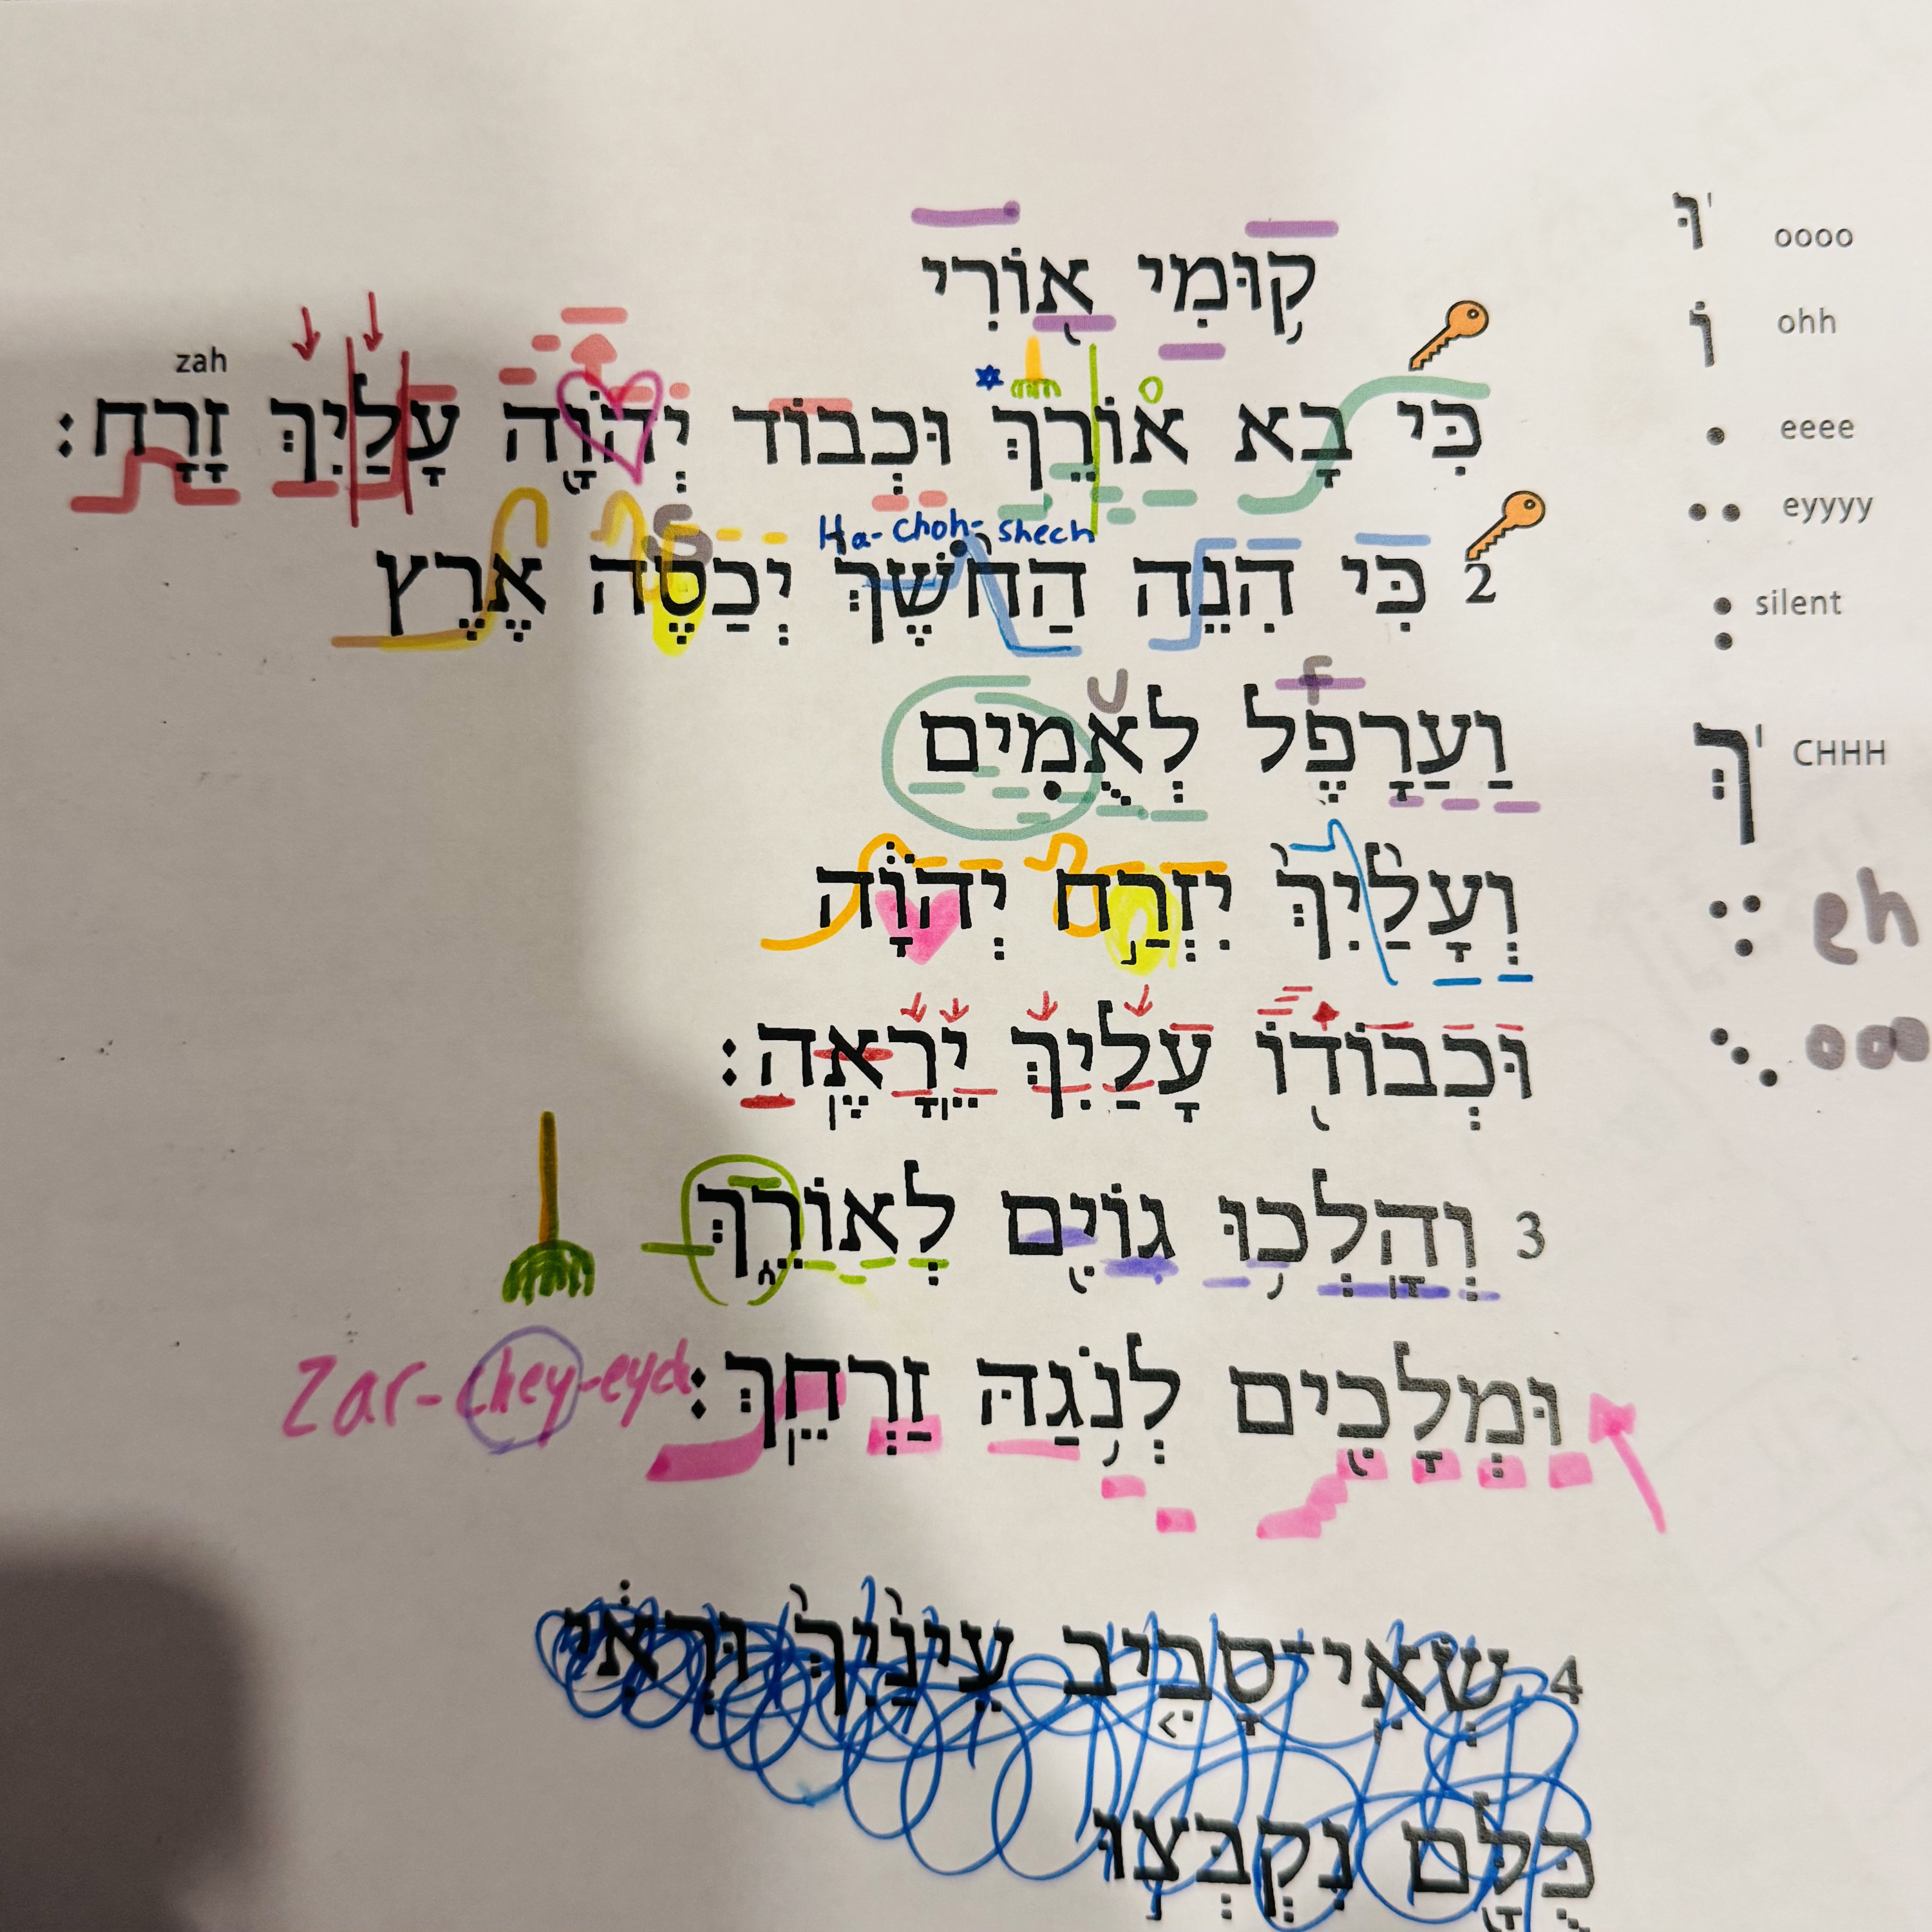 קוּמִי אוֹרִי
כִּי בָא אוֹרֵךְ וּכְבוֹד יְהוָה עָלַיִךְ זָרָח׃
zah
Ha-choh-shech
2 כִּי הִנֵּה הַחֹשֶׁךְ יְכַסֶּה אֶרֶץ
S
וַעֲרָפֶל לְאֻמִּים
F
U
וְעָלַיִךְ יִזְרַח יְהוָה
וּכְבוֹדוֹ עָלַיִךְ יֵרָאֶה׃
3 וְהָלְכוּ גוֹיִם לְאוֹרֵךְ
וּמְלָכִים לְנֹגַהּ זַרְחֵךְ׃
Zar-chey-eych
4 שְׂאִי־סָבִיב עֵינַיִךְ וּרְאִי
כֻּלָּם נִקְבְּצוּ
וּ oooo
וֹ ohh
eeee
eyyyy
silent
ךְ CHHH
eh
ooo